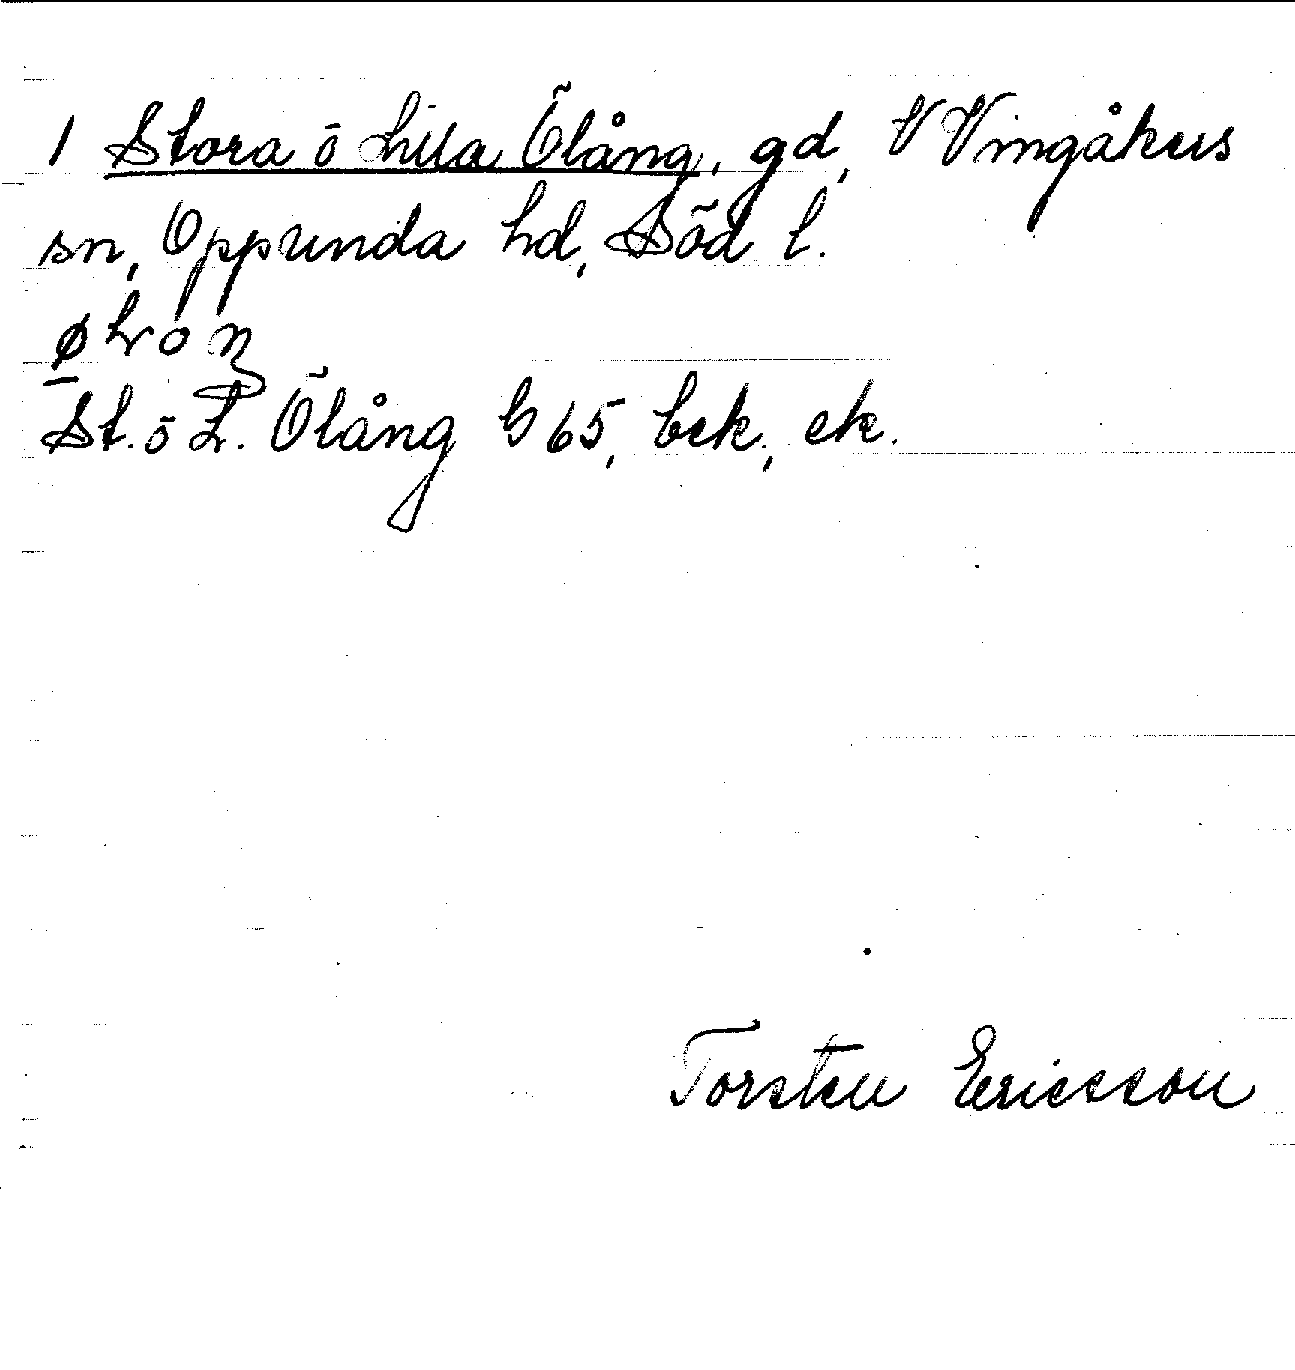 1 Stora ō Lilla Ōlång, gd, V Vingåkers
sn, Oppunda hd, Söd l.
St. ō L. Ōlång G 65, bek, ek.
Torsten Ericsson